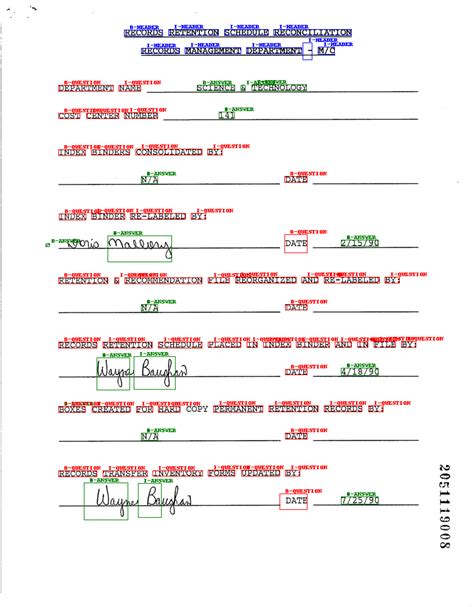 B-HEADER I-HEADER I-HEADER I-HEADER
RECORDS RETENTION SCHEDULE RECONCILIATION
I-HEADER I-HEADER I-HEADER I-HEADER I-HEADER
RECORDS MANAGEMENT DEPARTMENT - M/C
B-QUESTION I-QUESTION B-ANSWER
DEPARTMENT NAME SCIENCE & TECHNOLOGY
I-QUESTION B-ANSWER
COST CENTER NUMBER 141
B-QUESTION I-QUESTION I-QUESTION I-QUESTION
INDEX BINDERS CONSOLIDATED BY:
B-ANSWER B-QUESTION
N/A DATE
B-QUESTION I-QUESTION
INDEX BINDER RE-LABELED BY:
B-ANSWER B-QUESTION B-ANSWER
Doris Mallory DATE 2/15/90
B-QUESTION I-QUESTION I-QUESTION I-QUESTION
RETENTION & RECOMMENDATION FILE REORGANIZED AND RE-LABELED BY:
B-ANSWER B-QUESTION
N/A DATE
B-QUESTION I-QUESTION I-QUESTION I-QUESTION
RECORDS RETENTION SCHEDULE PLACED IN INDEX BINDER AND IN FILE BY:
B-ANSWER I-ANSWER B-QUESTION B-ANSWER
Wayne Baughan DATE 4/18/90
I-QUESTION I-QUESTION I-QUESTION I-QUESTION
BOXES CREATED FOR HARD COPY PERMANENT RETENTION RECORDS BY:
B-ANSWER B-QUESTION
N/A DATE
B-QUESTION I-QUESTION I-QUESTION I-QUESTION I-QUESTION
RECORDS TRANSFER INVENTORY FORMS UPDATED BY:
B-ANSWER I-ANSWER B-QUESTION B-ANSWER
Wayne Baughan DATE 7/25/90
2051119008